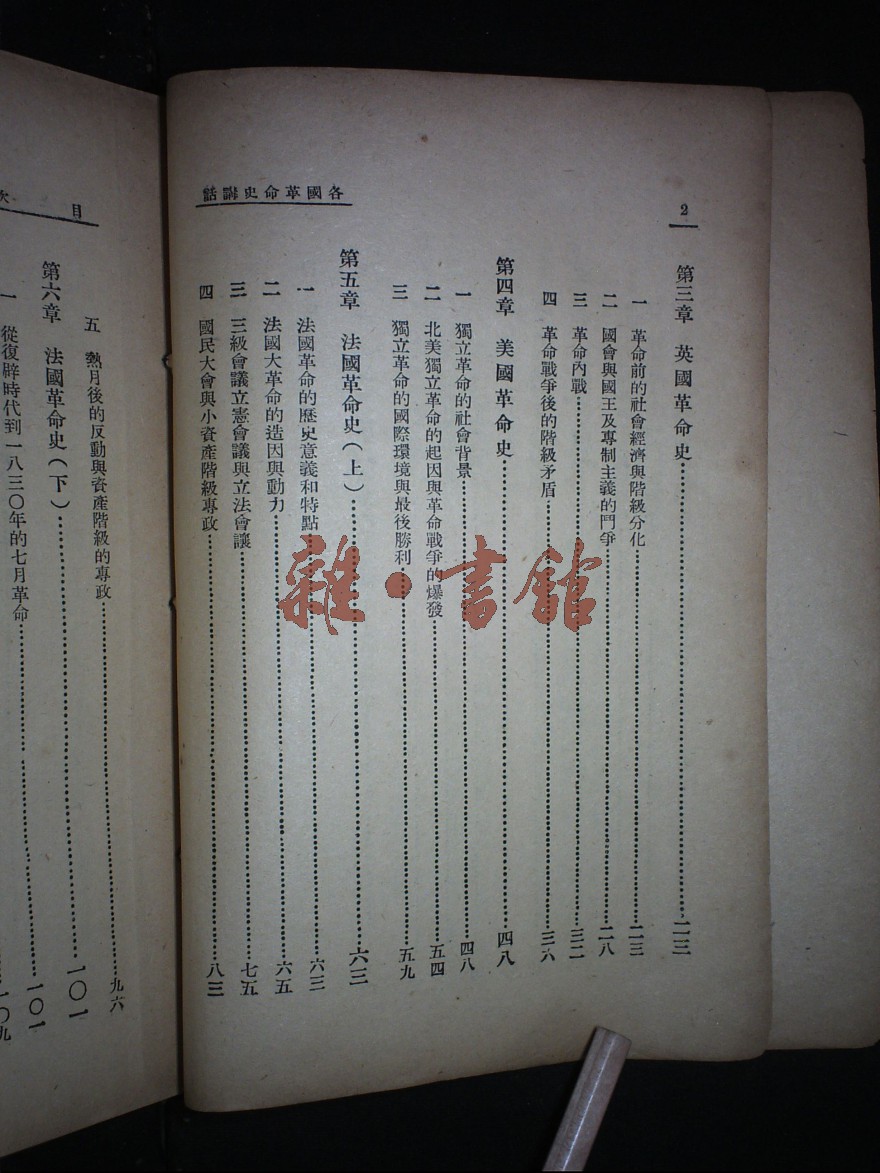 各國革命史講話
2
第三章 英國革命史……二三
一 革命前的社會經濟與階級分化……二三
二 國會與國王及專制主義的鬥爭……二八
三 革命內戰……三二
四 革命戰爭後的階級矛盾……三六
第四章 美國革命史……四八
一 獨立革命的社會背景……四八
二 北美獨立革命的起因與革命戰爭的爆發……五四
三 獨立革命的國際環境與最後勝利……五九
第五章 法國革命史(上)……六三
一 法國革命的歷史意義和特點……六三
二 法國大革命的造因與動力……六五
三 三級會議立憲會議與立法會議……七五
四 國民大會與小資產階級專政……八三
目 次
五 熱月後的反動與資產階級的專政……九六
第六章 法國革命史(下)……一〇一
一 從復辟時代到一八三〇年的七月革命……一〇一
一〇九
雜·書館